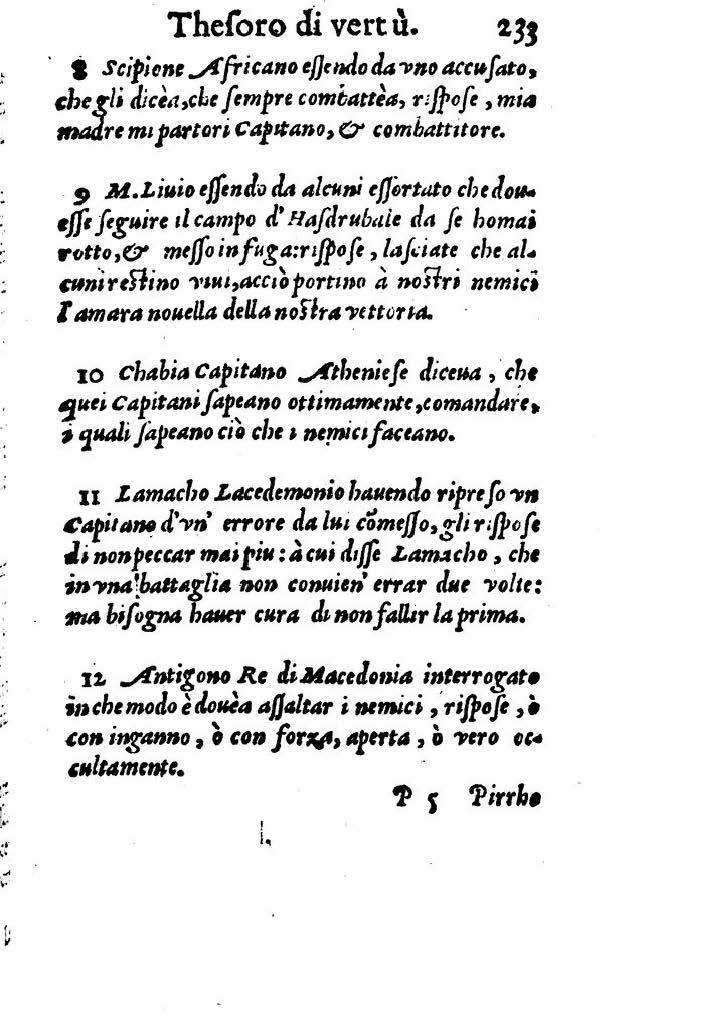 Theſoro di vertù. 233
8 Scipione Africano eſſendo da vno accuſato,
che gli dicèa,che ſempre combattèa, riſpoſe, mia
madre mi partorì Capitano, & combattitore.
9 M. Liuio eſſendo da alcuni eſſortato che dou-
eſſe ſeguire il campo d'Haſdrubale da ſe homai
rotto,& meſſo in fuga:riſpoſe, laſciate che al-
cuni reſtino viui,acciò portino à noſtri nemici
l'amara nouella della noſtra vettoria.
10 Chabia Capitano Athenieſe diceua, che
quei Capitani ſapeano ottimamente,comandare,
i quali ſapeano ciò che i nemici faceano.
11 Lamacho Lacedemonio hauendo ripreſo vn
Capitano d'vn' errore da lui cõmeſſo,gli riſpoſe
di non peccar mai piu: à cui diſſe Lamacho, che
in vna battaglia non conuien' errar due volte:
ma biſogna hauer cura di non fallir la prima.
12 Antigono Re di Macedonia interrogato
in che modo è douèa aſſaltar i nemici, riſpoſe, ò
con inganno, ò con forza, aperta, ò vero oc-
cultamente.
P 5 Pirrho